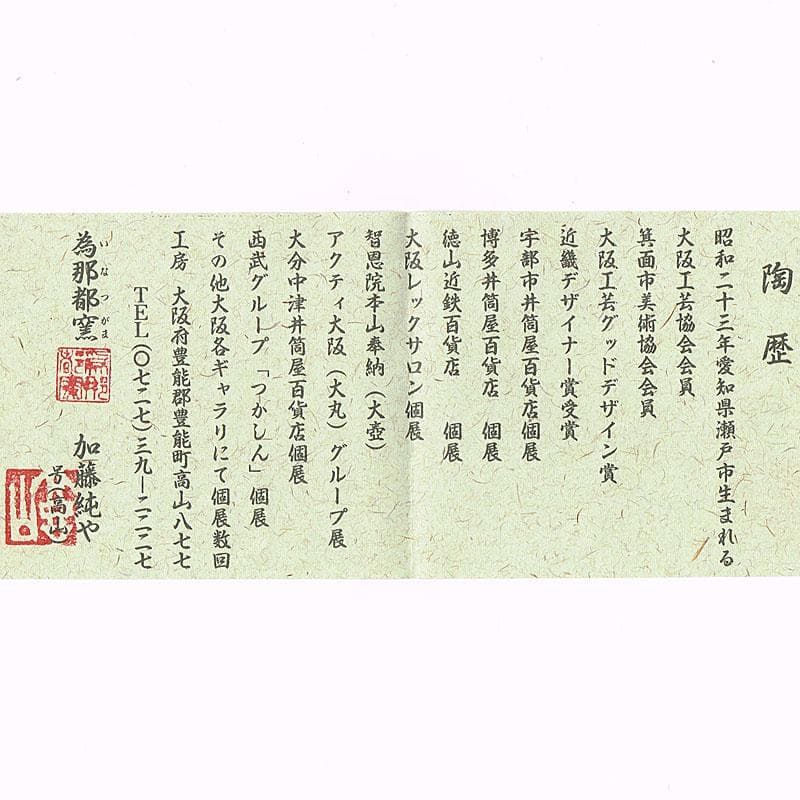 陶歴
昭和二十三年愛知県瀬戸市生まれる
大阪工芸協会会員
箕面市美術協会会員
大阪工芸グッドデザイン賞
近畿デザイナー賞受賞
宇部市井筒屋百貨店個展
博多井筒屋百貨店 個展
徳山近鉄百貨店 個展
大阪レックサロン個展
智恩院本山奉納(大壺)
アクティ大阪(大丸)グループ展
大分中津井筒屋百貨店個展
西武グループ「つかしん」個展
その他大阪各ギャラリにて個展数回
工房 大阪府豊能郡豊能町高山八七七
TEL(〇七二七)三九ー二二二七
為那都窯
いなつがま
加藤純や
号(高山)